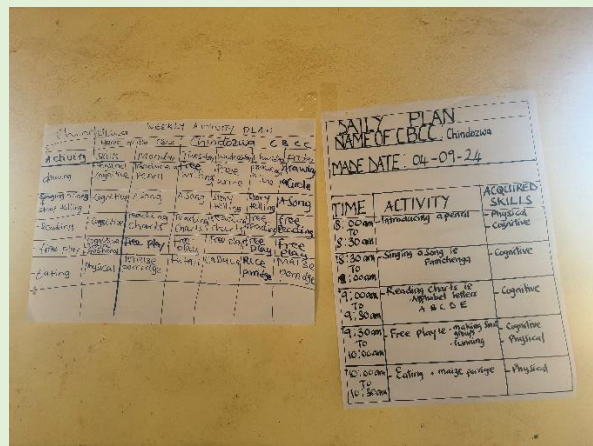 WEEKLY ACTIVITY PLAN
Name of the CBCC Chindozwa C B C C
Activity Skills Monday Tuesday Wednesday Thursday Friday
drawing cognitive Introduce a pencil Free writing Free drawing drawing Circle
Singing a Song story telling Cognitive A Song A Song Story telling Story telling A Song
Reading Cognitive Reading charts Reading charts Reading chart Free reading Free Reading
free play Cognitive Free play Free play Free play Free play Free play
Eating Physical Maize porridge Rice porridge Maize porridge
DAILY PLAN
NAME OF CBCC Chindozwa
MADE DATE: 04-09-24
TIME ACTIVITY ACQUIRED SKILLS
8:00am To 8:30am - Introducing a pencil - Physical - Cognitive
8:30am To :00am - Singing a Song ie Pamchenga - Cognitive
9:00am To 9:30am - Reading Charts ie Alphabet letters A B C D E - Cognitive
9:30am To 10:00am - Free play ie - making groups - running - Cognitive - Physical
10:00am To 10:30am - Eating • maize porrige - Physical